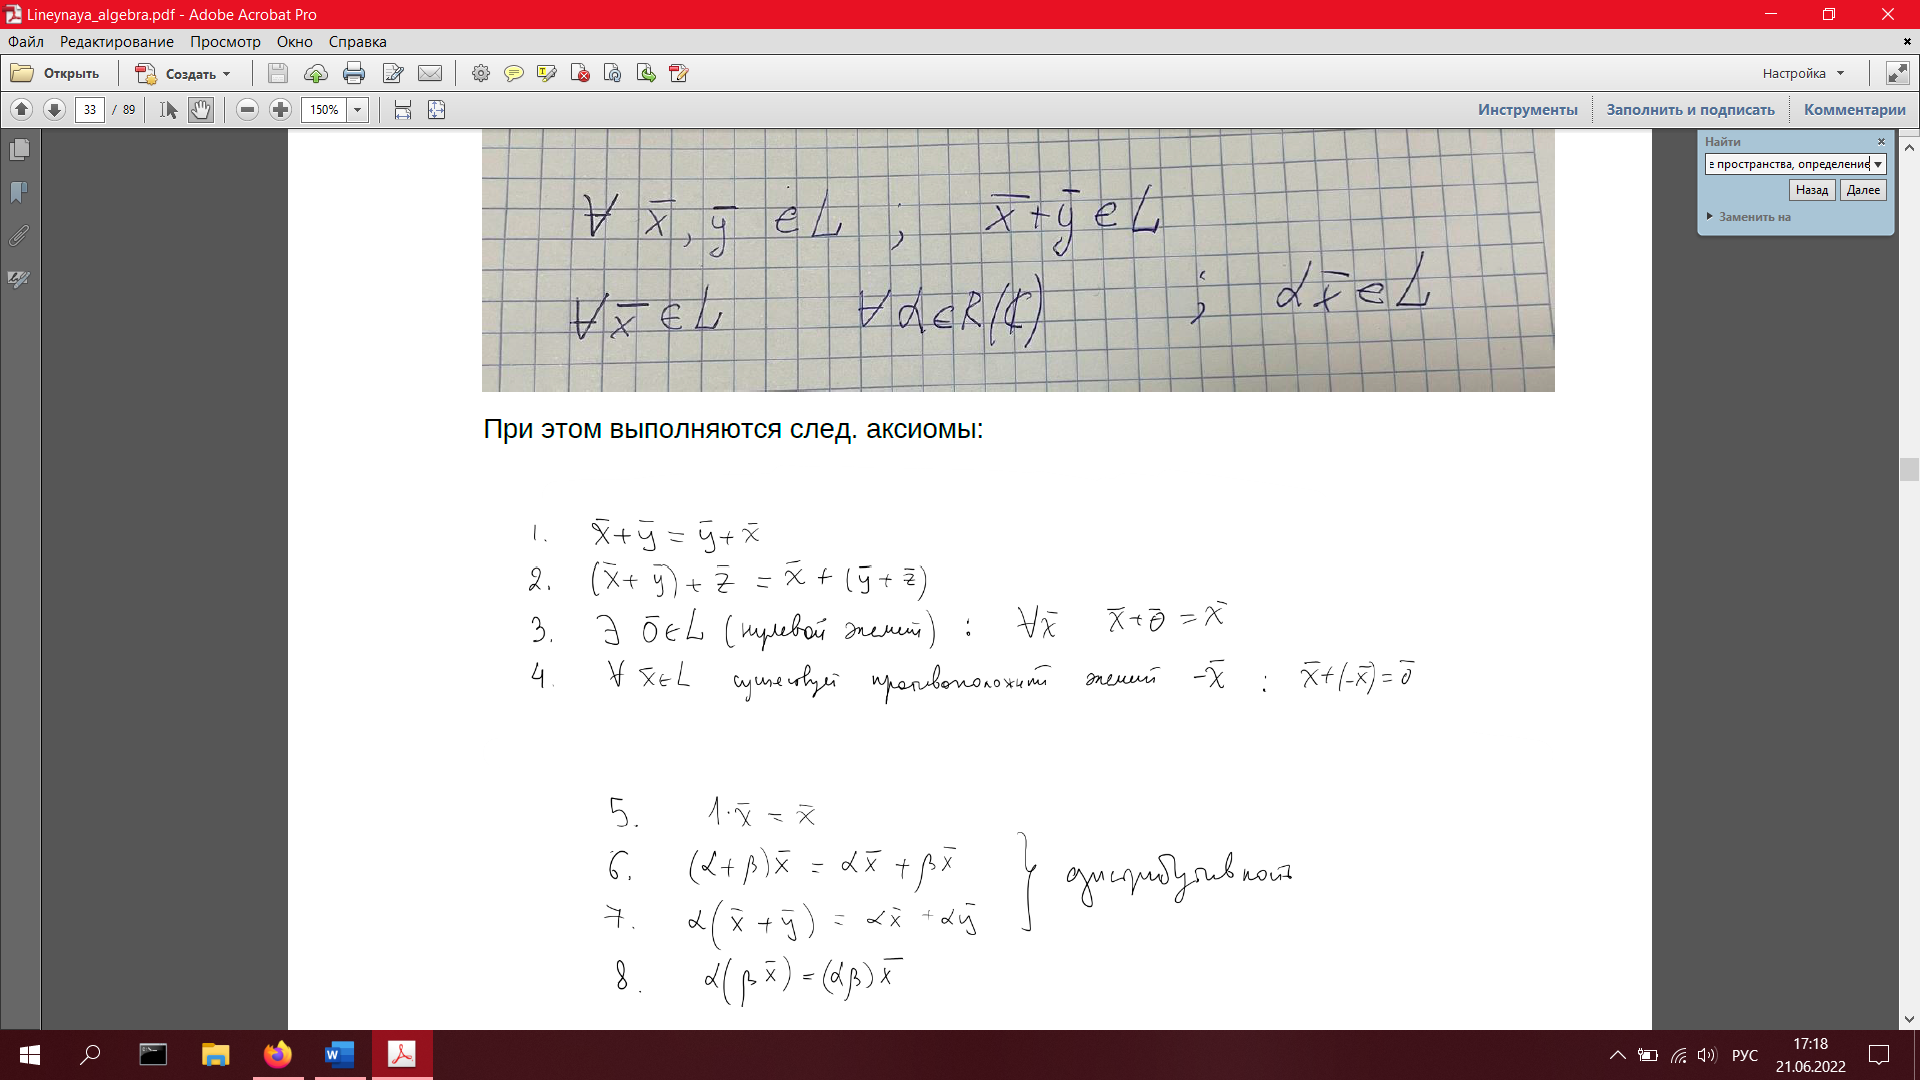 Lineynaya_algebra.pdf - Adobe Acrobat Pro
Файл Редактирование Просмотр Окно Справка
Открыть Создать Настройка
33 / 89 150% Инструменты Заполнить и подписать Комментарии
Найти
е пространства, определение
Назад Далее
Заменить на
∀ x̅, y̅ ∈ L ; x̅+y̅ ∈ L
∀x̅ ∈ L ∀α∈R(ℂ) ; αx̅ ∈ L
При этом выполняются след. аксиомы:
1. x̅+y̅ = y̅+x̅
2. (x̅+y̅)+z̅ = x̅+(y̅+z̅)
3. ∃ 0̅∈L (нулевой элемент) : ∀x̅ x̅+0̅ = x̅
4. ∀ x̅∈L существует противоположный элемент -x̅ : x̅+(-x̅)=0̅
5. 1·x̅ = x̅
6. (α+β)x̅ = αx̅ + βx̅
7. α(x̅+y̅) = αx̅ + αy̅
дистрибутивность
8. α(βx̅)=(αβ)x̅
РУС
17:18
21.06.2022